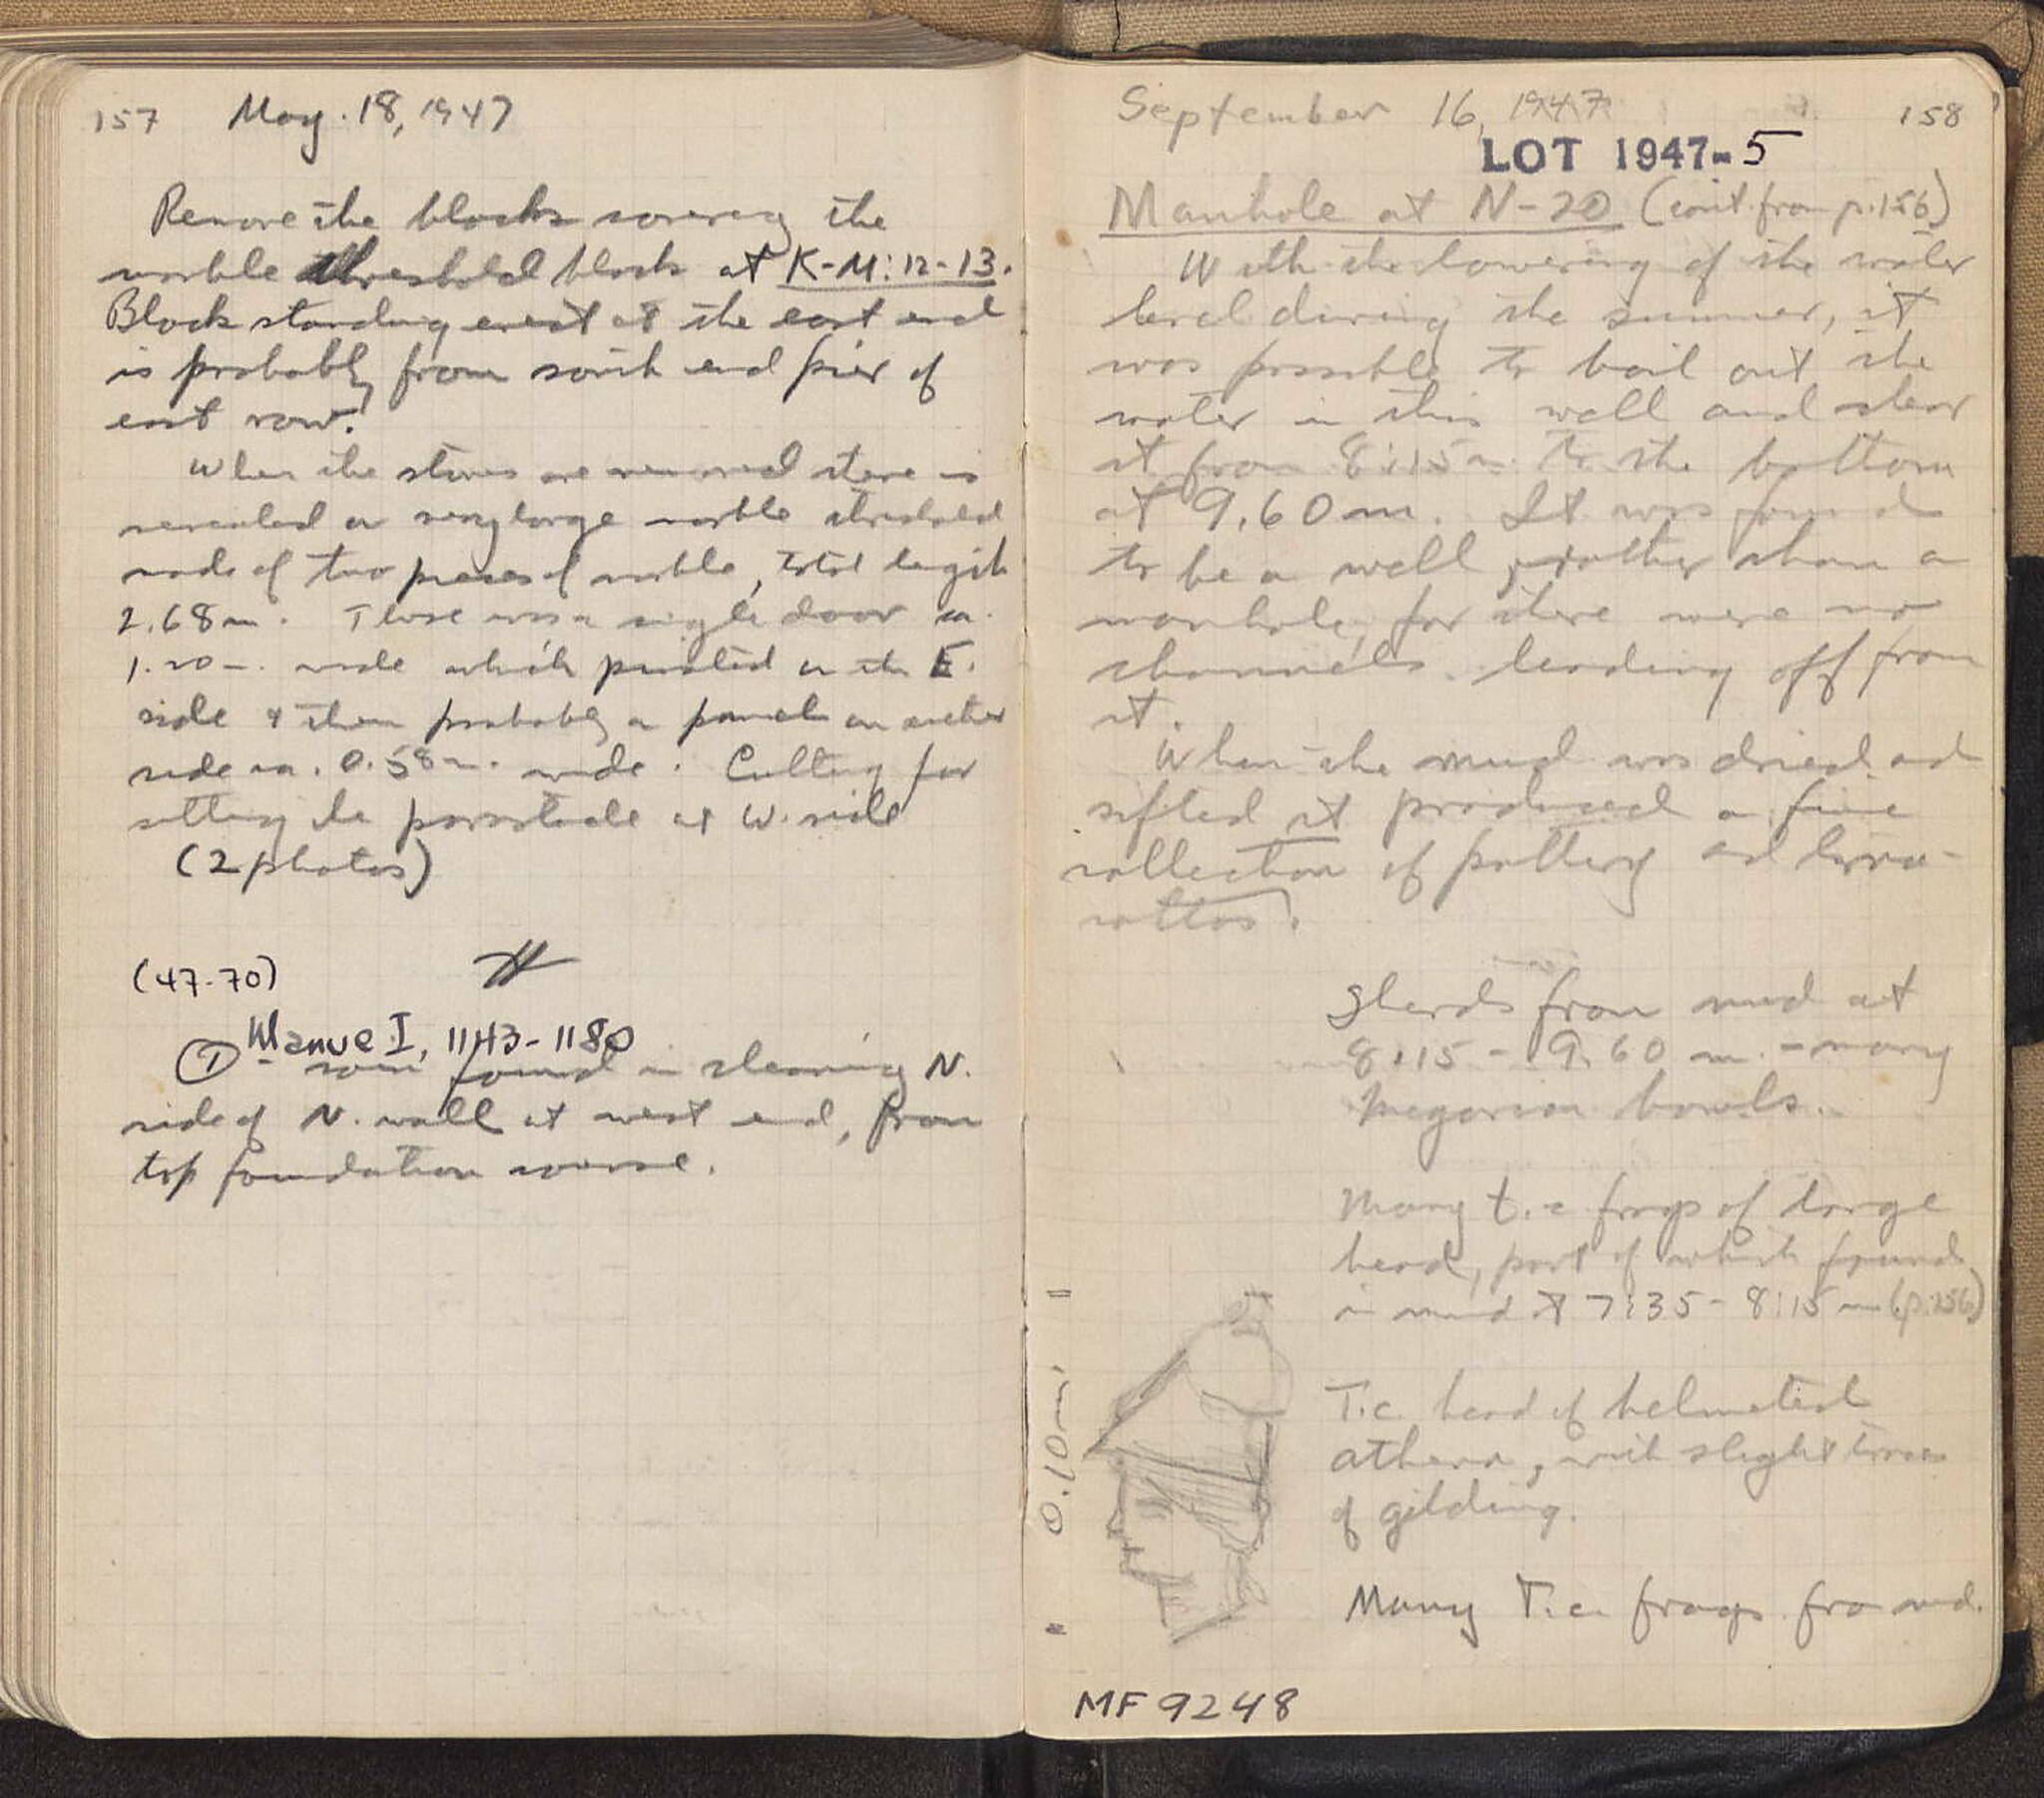 157 May. 18, 1947
Remove the blocks covering the
marble threshold block at K-M:12-13.
Block standing erect at the east end
is probably from south end pier of
east row.
When the stones are removed there is
revealed a very large marble threshold
made of two pieces of marble, total length
2.68 m. There was a single door ca.
1.20 m. wide which pivoted on the E.
side & then probably a panel on other
side ca. 0.58 m. wide. Cutting for
setting the parastade at W. side
(2 photos)
(47-70)
Manue I, 1143-1180
① - coin found in cleaning N.
side of N. wall at west end, from
top foundation course.
September 16, 1947 158
LOT 1947-5
Manhole at N-20 (cont. from p. 156)
With the lowering of the water
level during the summer, it
was possible to bail out the
water in this well and clear
it from 8.15 m. to the bottom
at 9.60 m. It was found
to be a well, rather than a
manhole, for there were no
channels leading off from
it.
When the mud was dried and
sifted it produced a fine
collection of pottery and terra-
cottas.
Sherds from mud at
8.15 - 9.60 m. - many
Megarian bowls.
Many t.c frags of large
head, part of which found
in mud at 7.35 - 8.15 m (p. 156)
T.c. head of helmeted
Athena, with slight traces
of gilding.
0.10 m
Many T.c. frags. fro mud.
MF 9248